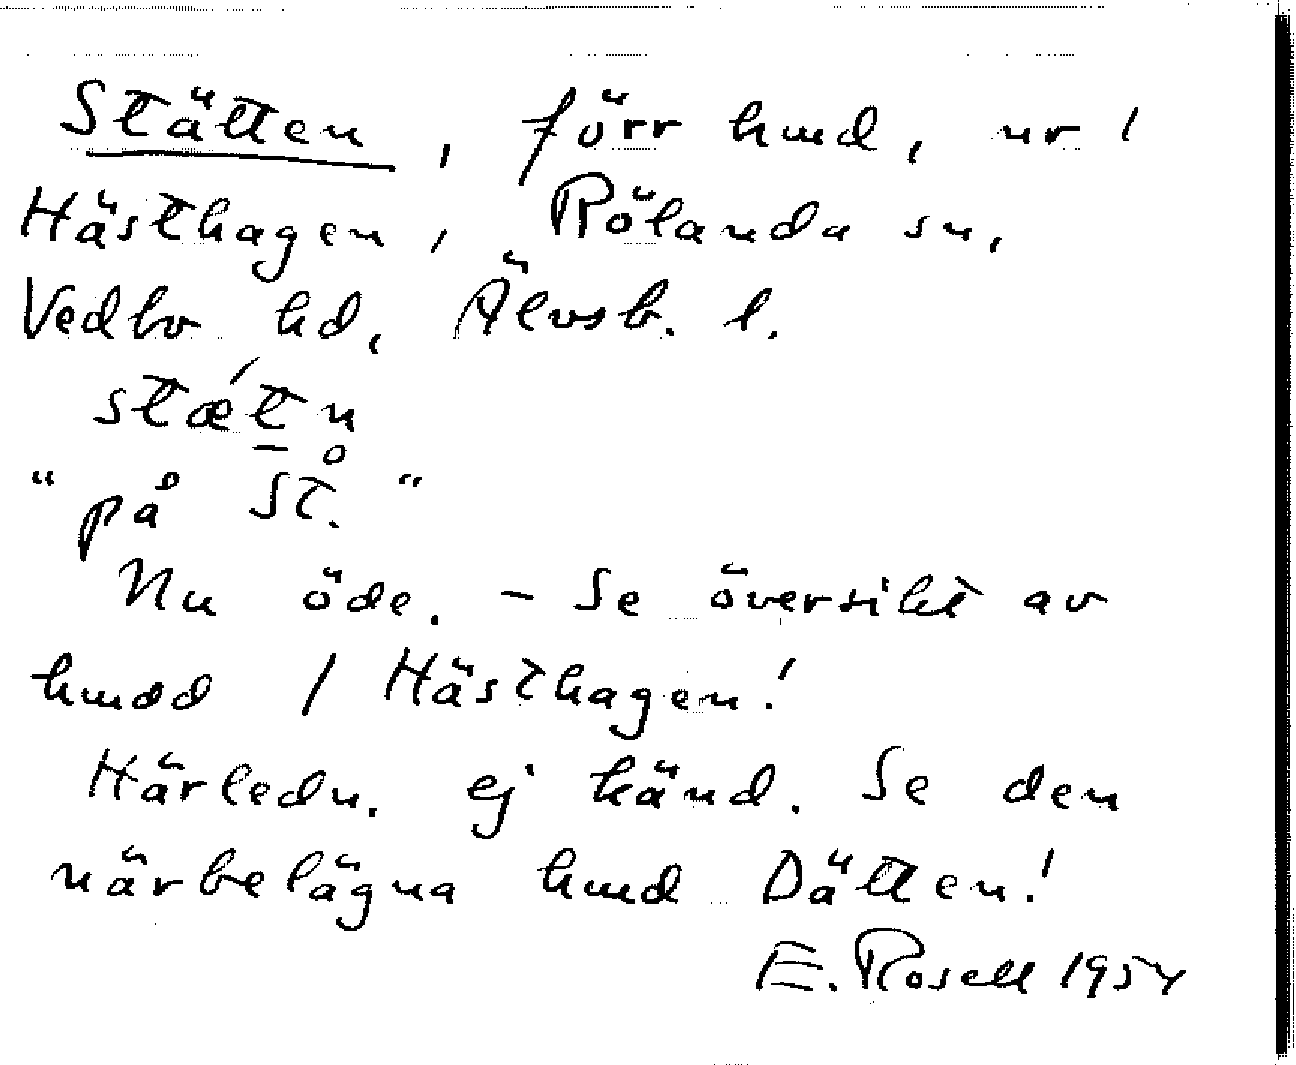 Stätten, förr hmd, ur /
Hästhagen, Rölanda sn,
Vedbo hd, Älvsb. l.
stǽt̲n̥
"på St."
Nu öde. - Se översikt av
hmdd / Hästhagen!
Härledn. ej känd. Se den
närbelägna hmd Dätten!
E. Rosell 1954